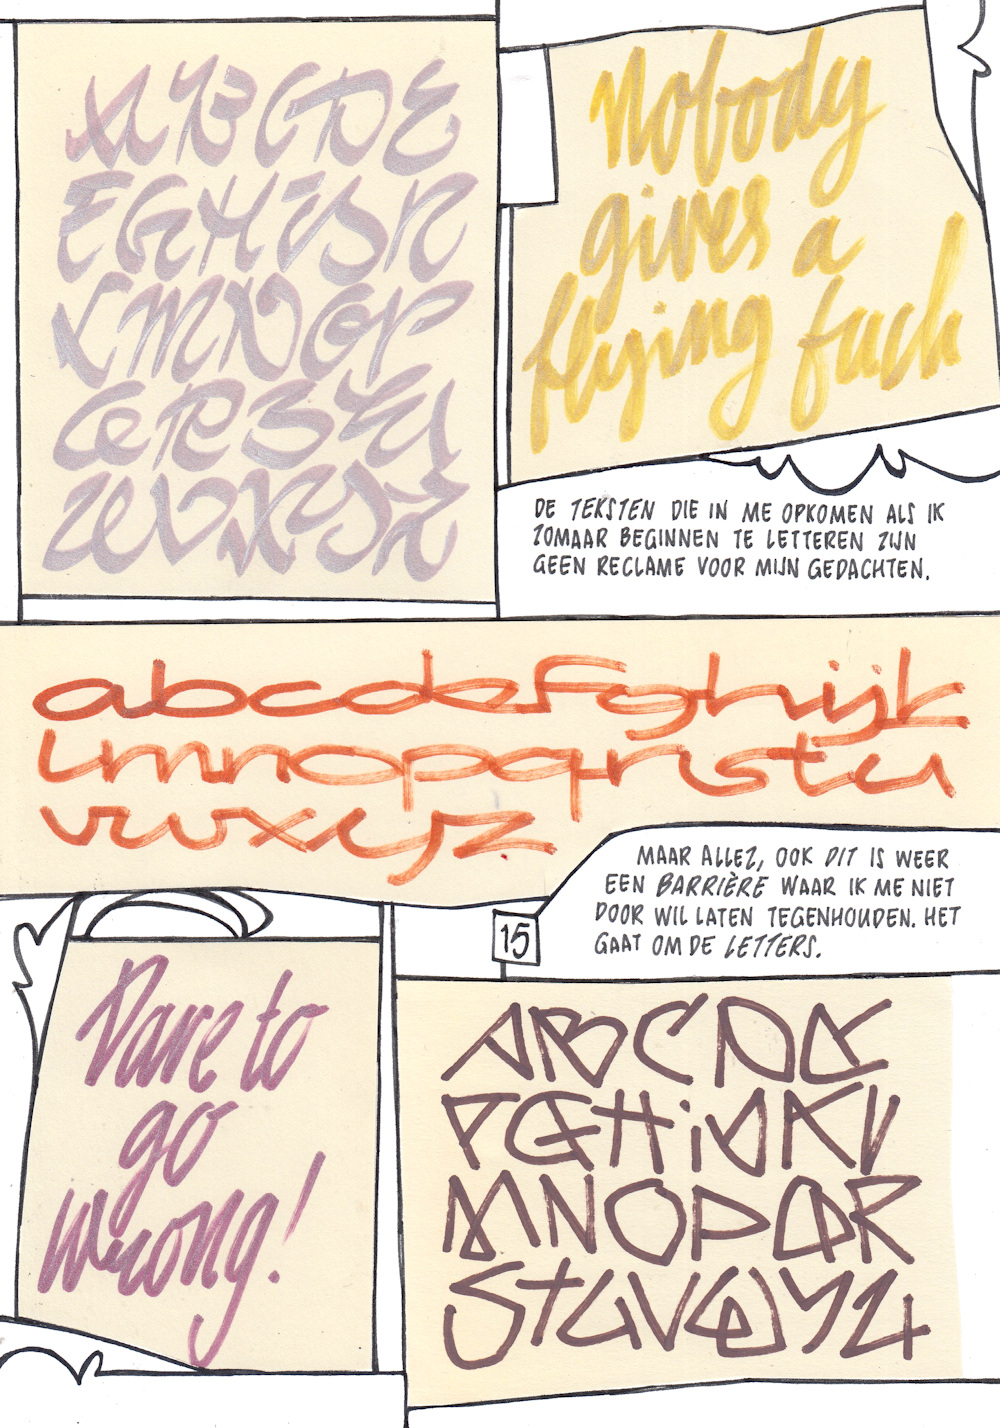 ABCDE
FGHIJK
LMNOP
QRSTU
VWXYZ
Nobody
gives a
flying fuck
DE TEKSTEN DIE IN ME OPKOMEN ALS IK
ZOMAAR BEGINNEN TE LETTEREN ZIJN
GEEN RECLAME VOOR MIJN GEDACHTEN.
abcdefghijk
lmnopqrstu
vwxyz
MAAR ALLEZ, OOK DIT IS WEER
EEN BARRIÈRE WAAR IK ME NIET
DOOR WIL LATEN TEGENHOUDEN. HET
GAAT OM DE LETTERS.
15
Dare to
go
wrong!
ABCDE
FGHIJKL
MNOPQR
STUVWXYZ